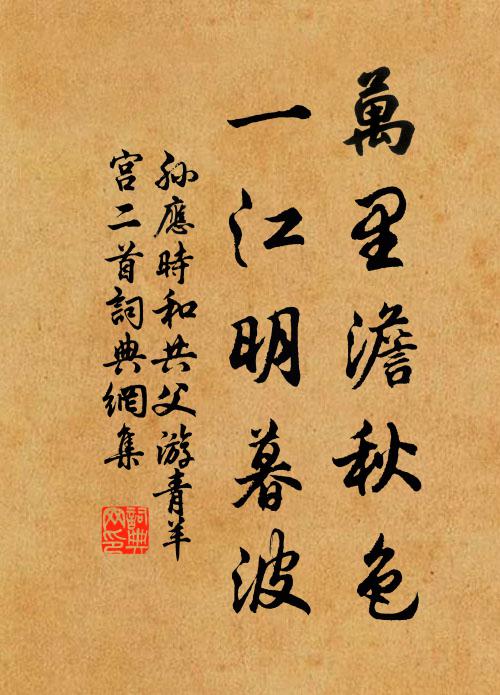 萬里澹秋色
一江明暮波
孫應時和共父游青羊
宮二首詞典網集
詞典
网印